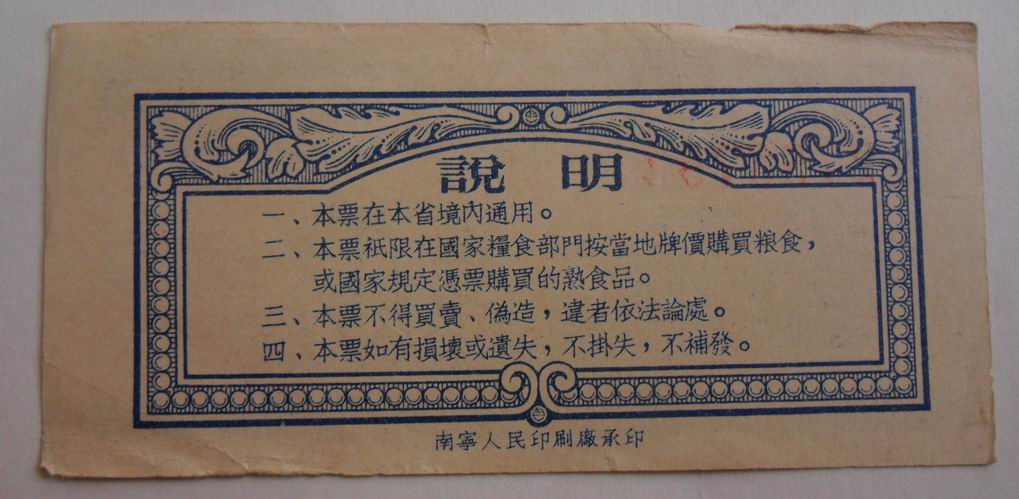 說明
一、本票在本省境內通用。
二、本票祇限在國家糧食部門按當地牌價購買粮食，
或國家規定憑票購買的熟食品。
三、本票不得買賣、偽造，違者依法論處。
四、本票如有損壞或遺失，不掛失，不補發。
南寧人民印刷廠承印